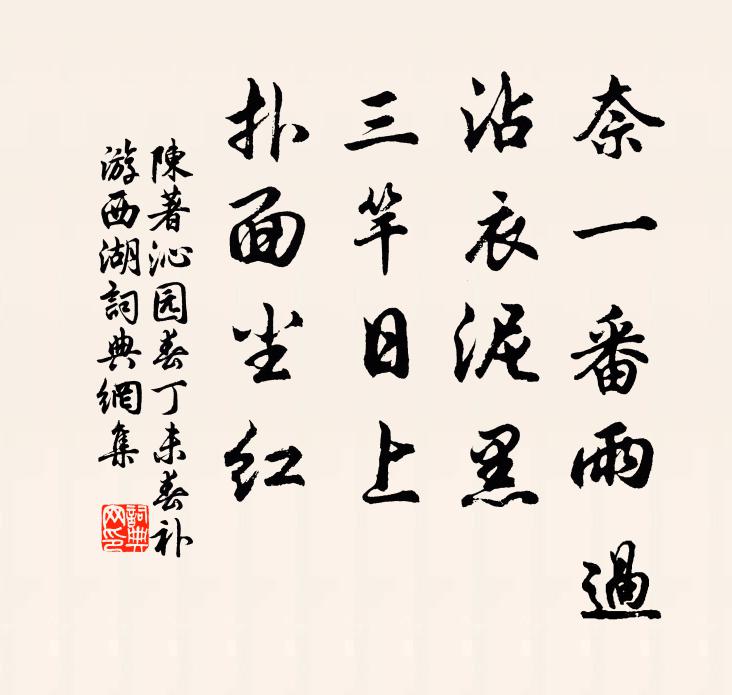 奈一番雨過
沾衣泥黑
三竿日上
扑面尘红
陳著沁园春丁未春补
游西湖詞典網集
詞典网印